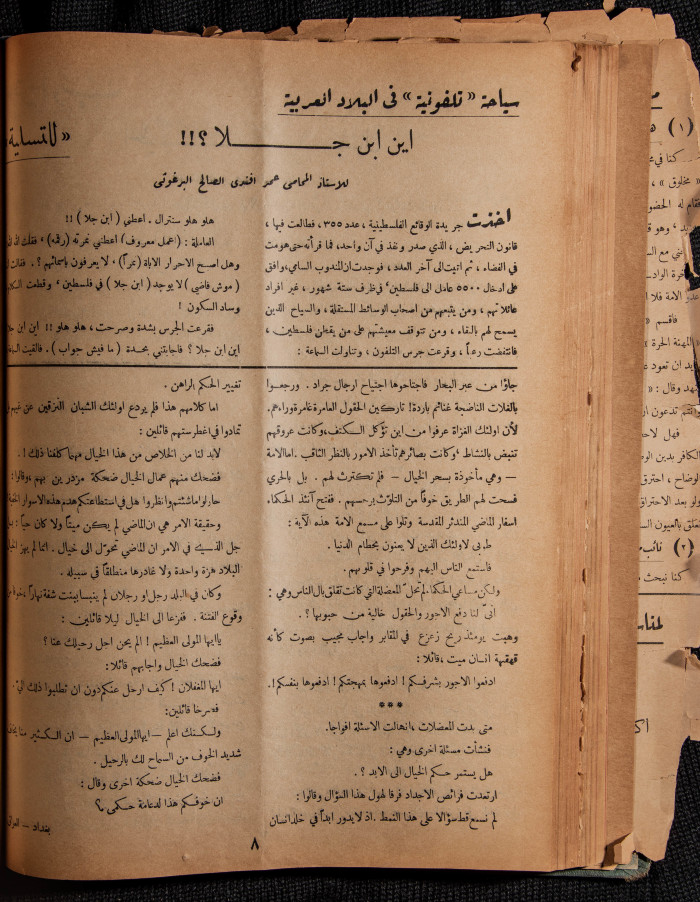 سياحة « تلفونية » فى البلاد العربية
اين ابن جـــــلا ؟!!
للاستاذ المحامى عمد افندى الصالح البرغوثى
اخذت جريدة الوقائع الفلسطينية ، عدد ٣٥٥ ، فطالعت فيها ،
قانون التحريض ، الذي صدر ونفذ في آن واحد ، فما قرأته حتى هومت
في الفضاء ، ثم اتيت الى آخر العدد ، فوجدت ان المندوب السامي ، وافق
على ادخال ٥٥٠٠ عامل الى فلسطين ، في ظرف ستة شهور ، غير افراد
عائلاتهم ، ومن يتبعهم من اصحاب الوسائط المستقلة ، والسياح الذين
يسمح لهم بالبقاء ، ومن تتوقف معيشتهم على من يقطن فلسطين ،
فانتفضت رعباً ، وقرعت جرس التلفون ، وتناولت السماعة :
هلو هلو سنترال . اعطني ( ابن جلا ) !!
العاملة : ( اعمل معروف ) اعطني نمرته ( رقمه ) ، فقلت
وهل اصبح الاحرار الاباة ( نمراً ) ، لا يعرفون باسمائهم ؟ . فقالت
( موش فاضي ) لا يوجد ( ابن جلا ) في فلسطين ، وقطعت
وساد السكون !
فقرعت الجرس بشدة وصرخت ، هلو هلو !! اين ابن
اين ابن جلا ؟ فاجابتني بحدة ( ما فيش جواب ) . فالقيت
« للتسلية
جاؤا من عبر البحار فاجتاحوها اجتياح ارجال جراد . ورجعوا
بالغلات الناضجة غنائم باردة ! تاركين الحقول العامرة غامرة وراءهم .
لأن اولئك الغزاة عرفوا من اين تؤكل الكتف ، وكانت عروقهم
تنبض بالنشاط ، وكانت بصائرهم تأخذ الامور بالنظر الثاقب . اما الامة
— وهي مأخوذة بسحر الخيال — فلم تكترث لهم . بل بالحري
فسحت لهم الطريق خوفاً من التلوث برجسهم . ففتح آنئذ الحكماء
اسفار الماضي المندثر المقدسة وتلوا على مسمع الامة هذه الآية :
طوبى لاولئك الذين لا يعنون بحطام الدنيا .
فاستمع الناس اليهم وفرحوا في قلوبهم .
ولكن مساعي الحكماء لم تحلّ المعضلة التي كانت تقلق بال الناس وهي :
أنّى لنا دفع الاجور والحقول خالية من حبوبها ؟ .
وهبت يومئذ ريح زعزع في المقابر واجاب مجيب بصوت كأنه
قهقهة انسان ميت ، قائلا :
ادفعوا الاجور بشرفكم ! ادفعوها بمهجتكم ! ادفعوها بنفسكم ! .
***
متى بدت المعضلات ، انهالت الاسئلة افواجا .
فنشأت مسئلة اخرى وهي :
هل يستمر حكم الخيال الى الابد ؟ .
ارتعدت فرائص الاجداد فرقا لهول هذا السؤال وقالوا :
لم نسمع قط سؤالا على هذا النمط . اذ لا يدور ابداً في خلد انسان
تغيير الحكم الراهن .
اما كلامهم هذا فلم يردع اولئك الشبان النزقين عن
تمادوا في غطرستهم قائلين :
لابد لنا من الخلاص من هذا الخيال مهما كلفنا ذلك ! .
فضحك منهم عمال الخيال ضحكة مزدر بهم ، وقالوا :
حاولوا ما شئتم وانظروا هل في استطاعتكم هدم هذه الاسوار
وحقيقة الامر هي ان الماضي لم يكن ميتاً ولا كان حياً :
جل الذي في الامر ان الماضي تحوّل الى خيال . انما لم يهز
البلاد هزة واحدة ولا غادرها منطلقاً في سبيله .
وكان في البلد رجل او رجلان لم ينبسا ببنت شفة نهاراً ،
وقوع الفتنة . ففزعا الى الخيال ليلا قائلين :
يا ايها المولى العظيم ! الم يحن اجل رحيلك عنا ؟
فضحك الخيال واجابهم قائلا :
ايها المغفلان ! كيف ارحل عنكم دون ان تطلبوا ذلك اليّ .
فصرخا قائلين :
ولكنك اعلم — ايها المولى العظيم — ان الكثير منا
شديد الخوف من السماح لك بالرحيل .
فضحك الخيال ضحكة اخرى وقال :
ان خوفكم هذا لدعامة حكمي
بغداد —
٨